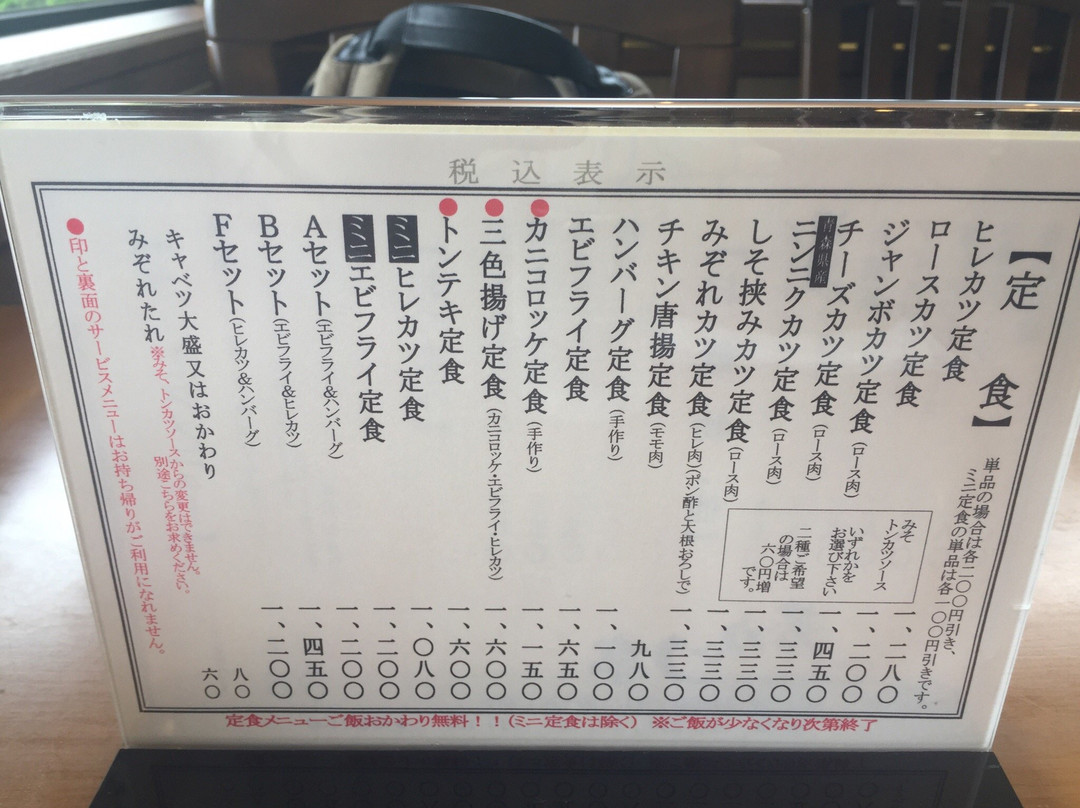 税込表示
【定食】
単品の場合は各二〇〇円引き、
ミニ定食の単品は各一〇〇円引きです。
ヒレカツ定食 一、二八〇
ロースカツ定食 一、二〇〇
ジャンボカツ定食(ロース肉) 一、四五〇
チーズカツ定食(ロース肉) 一、三三〇
青森県産
ニンニクカツ定食(ロース肉) 一、三三〇
しそ挟みカツ定食(ロース肉) 一、三三〇
みぞれカツ定食(ヒレ肉)(ポン酢と大根おろしで) 一、三三〇
チキン唐揚定食(モモ肉) 九八〇
ハンバーグ定食(手作り) 一、一〇〇
エビフライ定食 一、六五〇
●カニコロッケ定食(手作り) 一、一五〇
●三色揚げ定食(カニコロッケ・エビフライ・ヒレカツ) 一、六〇〇
●トンテキ定食 一、六〇〇
ミニヒレカツ定食 一、〇八〇
ミニエビフライ定食 一、二〇〇
Aセット(エビフライ&ハンバーグ) 一、二〇〇
Bセット(エビフライ&ヒレカツ) 一、四五〇
Fセット(ヒレカツ&ハンバーグ) 一、二〇〇
キャベツ大盛又はおかわり 八〇
みぞれたれ 六〇
※みそ、トンカツソースからの変更はできません。
別途こちらをお求めください。
●印と裏面のサービスメニューはお持ち帰りがご利用になれません。
みそ
トンカツソース
いずれかを
お選び下さい
二種ご希望
の場合は
六〇円増
です。
定食メニューご飯おかわり無料！！(ミニ定食は除く) ※ご飯が少なくなり次第終了